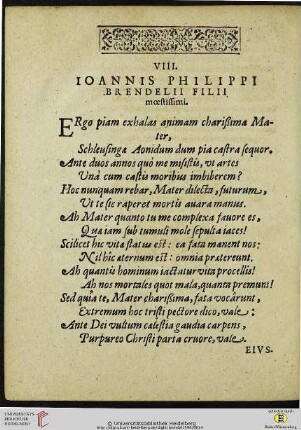 VIII.
IOANNIS PHILIPPI
BRENDELII FILII
mœstissimi.
ERgo piam exhalas animam charißima Ma-
ter,
Schleusingæ Aonidum dum pia castra sequor,
Ante duos annos quò me misistis, ut artes
Unà cum castis moribus imbiberem?
Hoc nunquam rebar, Mater dilecta, futurum,
Ut te sic raperet mortis avara manus.
Ah Mater quanto tu me complexa favore es,
Qua iam sub tumuli mole sepulta iaces!
Scilicet hic vita status est: ea fata manent nos:
Nil hic aternum est: omnia prætereunt.
Ah quantis hominum iactatur vita procellis!
Ah nos mortales quot mala, quanta premunt!
Sed quia te, Mater charißima, fata vocârunt,
Extremum hoc tristi pectore dico, vale:
Ante Dei vultum cælestia gaudia carpens,
Purpureo Christi parta cruore, vale.
EIVS-
UNIVERSITÄTS-
BIBLIOTHEK
HEIDELBERG
© Universitätsbibliothek Heidelberg